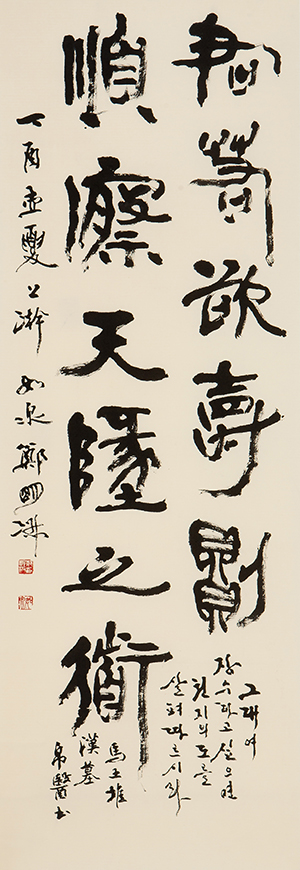 君若欲壽則
順察天墬之衜
그대여
장수하고 싶으면
천지의 도를
살펴 따르시라
馬王堆
漢墓
帛醫書
丁酉孟夏上澣 如泉 鄭明